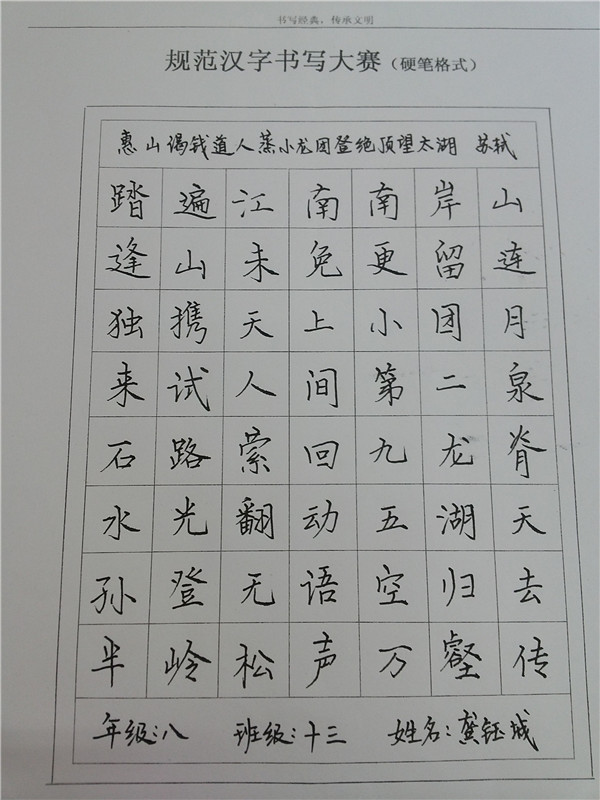 书写经典，传承文明
规范汉字书写大赛（硬笔格式）
惠山谒钱道人蒸小龙团登绝顶望太湖 苏轼
踏遍江南南岸山
逢山未免更留连
独携天上小团月
来试人间第二泉
石路萦回九龙脊
水光翻动五湖天
孙登无语空归去
半岭松声万壑传
年级：八 班级：十三 姓名：龚钰城